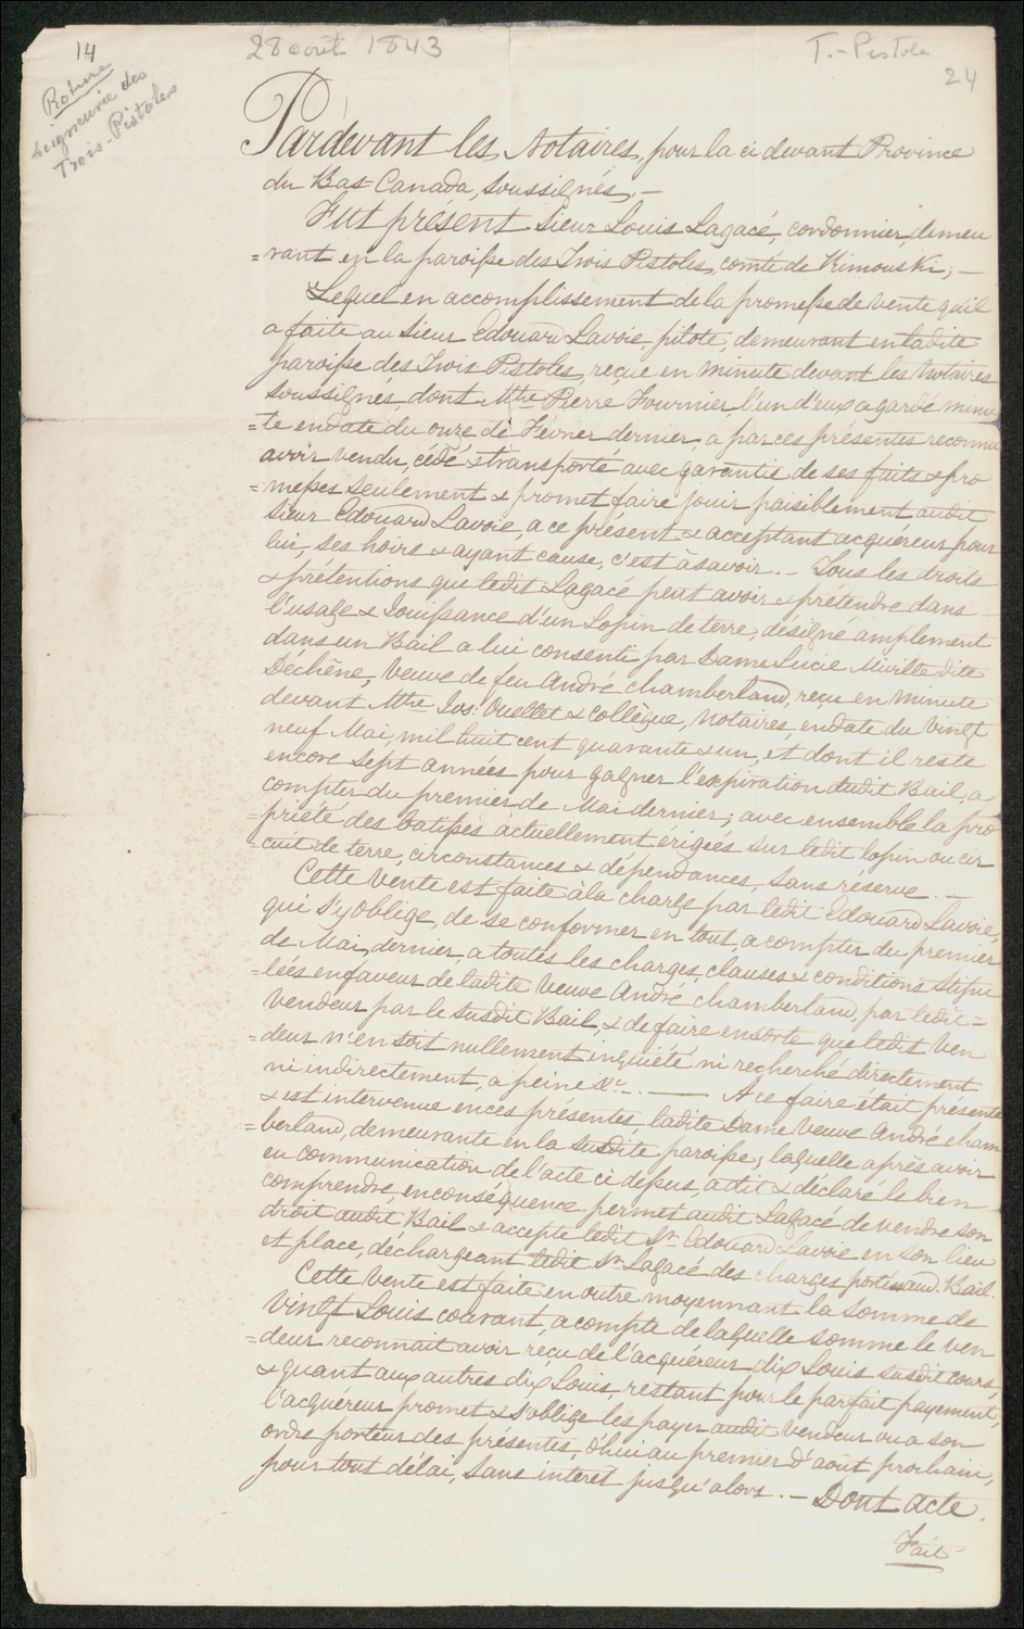 14
28 août 1843
T.-Pistole
24
Roture
Seigneurie des
Trois-Pistoles
Pardevant les Notaires, pour la ci devant Province
du Bas Canada, soussignés, —
Fut présent Sieur Louis Lagacé, cordonnier, demeu
=rant en la paroisse des Trois Pistoles, comté de Rimouski; —
Lequel en accomplissement de la promesse de vente qu'il
a faite au Sieur Edouard Lavoie, pilote, demeurant en ladite
paroisse des Trois Pistoles, reçue en minute devant les Notaires
soussignés, dont Mtre Pierre Fournier l'un d'eux a gardé minu
=te en date du onze de Février dernier, a par ces présentes reconnu
avoir vendu, cédé & transporté avec garantie de ses faits & pro
=messes seulement & promet faire jouir paisiblement audit
Sieur Edouard Lavoie, a ce présent & acceptant acquéreur pour
lui, ses hoirs & ayant cause, c'est àsavoir. — Tous les droits
& prétentions que ledit Lagacé peut avoir & prétendre dans
l'usage & Jouissance d'un Lopin de terre, désigné amplement
dans un Bail a lui consenti par Dame Lucie Miville dite
Déchêne, Veuve de feu André Chamberland, reçu en minute
devant Mtre Jos: Ouellet & collègue, Notaires, en date du Vingt
neuf Mai, mil huit cent quarante & un, et dont il reste
encore sept années pour gagner l'expiration dudit Bail, a
compter du premier de Mai dernier; avec ensemble la pro
=priété des batisses actuellement érigées sur ledit lopin ou cir
=cuit de terre, circonstances & dépendances, sans réserve. —
Cette Vente est faite àla charge par ledit Edouard Lavoie,
qui s'y oblige, de se conformer en tout, a compter du premier
de Mai dernier, a toutes les charges, clauses & conditions stipu
=lées en faveur de ladite Veuve André Chamberland, par ledit =
Vendeur par le susdit Bail, & de faire ensorte que ledit Ven
=deur n'en soit nullement inquiété ni recherché directement
ni indirectement, a peine &c. — A ce faire était présente
& est intervenue en ces présentes, ladite Dame Veuve André Cham
=berland, demeurante en la susdite paroisse; laquelle après avoir
eu communication de l'acte ci dessus, a dit & déclaré le bien
comprendre, en conséquence permet audit Lagacé de vendre son
droit audit Bail & accepte ledit Sr. Edouard Lavoie en son lieu
et place, déchargeant ledit Sr. Lagacé des charges portées aud. Bail.
Cette Vente est faite en outre moyennant la Somme de
Vingt Louis courant, a compte de laquelle somme le ven
=deur reconnait avoir reçu de l'acquéreur dix Louis susdit cours,
& quant aux autres dix Louis, restant pour le parfait payement,
l'acquéreur promet & s'oblige les payer audit vendeur ou a son
ordre porteur des présentes, d'hui au premier d'août prochain,
pour tout délai, sans interêt jusqu'alors. — Dont Acte.
Fait